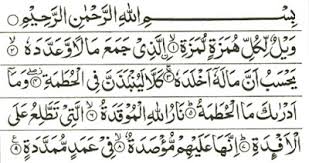 بِسْمِ اللهِ الرَّحْمٰنِ الرَّحِيْمِ
وَيْلٌ لِّكُلِّ هُمَزَةٍ لُّمَزَةٍ ۙ﴿۱﴾ الَّذِيْ جَمَعَ مَالًا وَّعَدَّدَهٗ ۙ﴿۲﴾
يَحْسَبُ اَنَّ مَالَهٗۤ اَخْلَدَهٗ ۚ﴿۳﴾ كَلَّا لَيُنْۢبَذَنَّ فِي الْحُطَمَةِ ۖ﴿۴﴾ وَمَاۤ
اَدْرٰىكَ مَا الْحُطَمَةُ ؕ﴿۵﴾ نَارُ اللهِ الْمُوْقَدَةُ ۙ﴿۶﴾ الَّتِيْ تَطَّلِعُ عَلَى
الْاَفْـِٕدَةِ ؕ﴿۷﴾ اِنَّهَا عَلَيْهِمْ مُّؤْصَدَةٌ ۙ﴿۸﴾ فِيْ عَمَدٍ مُّمَدَّدَةٍ ﴿۹﴾